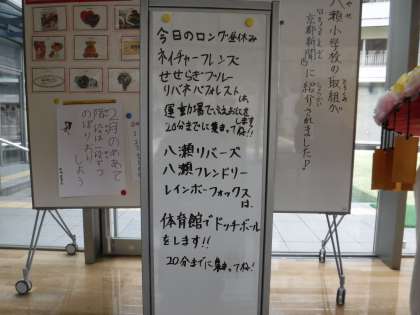 今日のロング昼休み
ネイチャーフレンズ
せせらぎブルー
リバネバフォレスト
は、
運動場で
します
20分までに集まってね!!
八瀬リバーズ
八瀬フレンドリー
レインボーフォックス
は、
体育館でドッチボール
をします!!
20分までに集まってね!
八瀬小学校の取組が
京都新聞に紹介されました♪
2月のめあて
階段は
のぼりおり
しよう